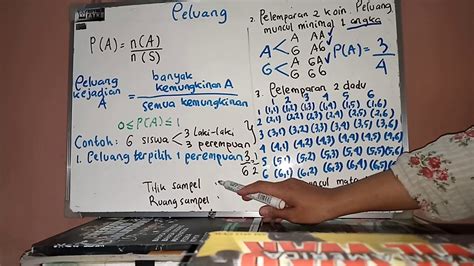 Peluang
P(A) = n(A)
n(S)
Peluang
kejadian
A
=
banyak
kemungkinan A
semua kemungkinan
0 ≤ P(A) ≤ 1
Contoh: 6 siswa < 3 laki-laki
3 perempuan
1. Peluang terpilih 1 perempuan 3
6
Titik sampel
Ruang sampel
2. Pelemparan 2 koin. Peluang
muncul minimal 1 angka
A < A AA
G AG
G < A GA
G GG
P(A) = 3
4
3. Pelemparan 2 dadu
1 2 3 4 5 6
1 (1,1) (1,2) (1,3) (1,4) (1,5) (1,6)
2 (2,1) (2,2) (2,3) (2,4) (2,5) (2,6)
3 (3,1) (3,2) (3,3) (3,4) (3,5) (3,6)
4 (4,1) (4,2) (4,3) (4,4) (4,5) (4,6)
5 (5,1) (5,2) (5,3) (5,4) (5,5) (5,6)
6 (6,1) (6,2) (6,3) (6,4) (6,5) (6,6)